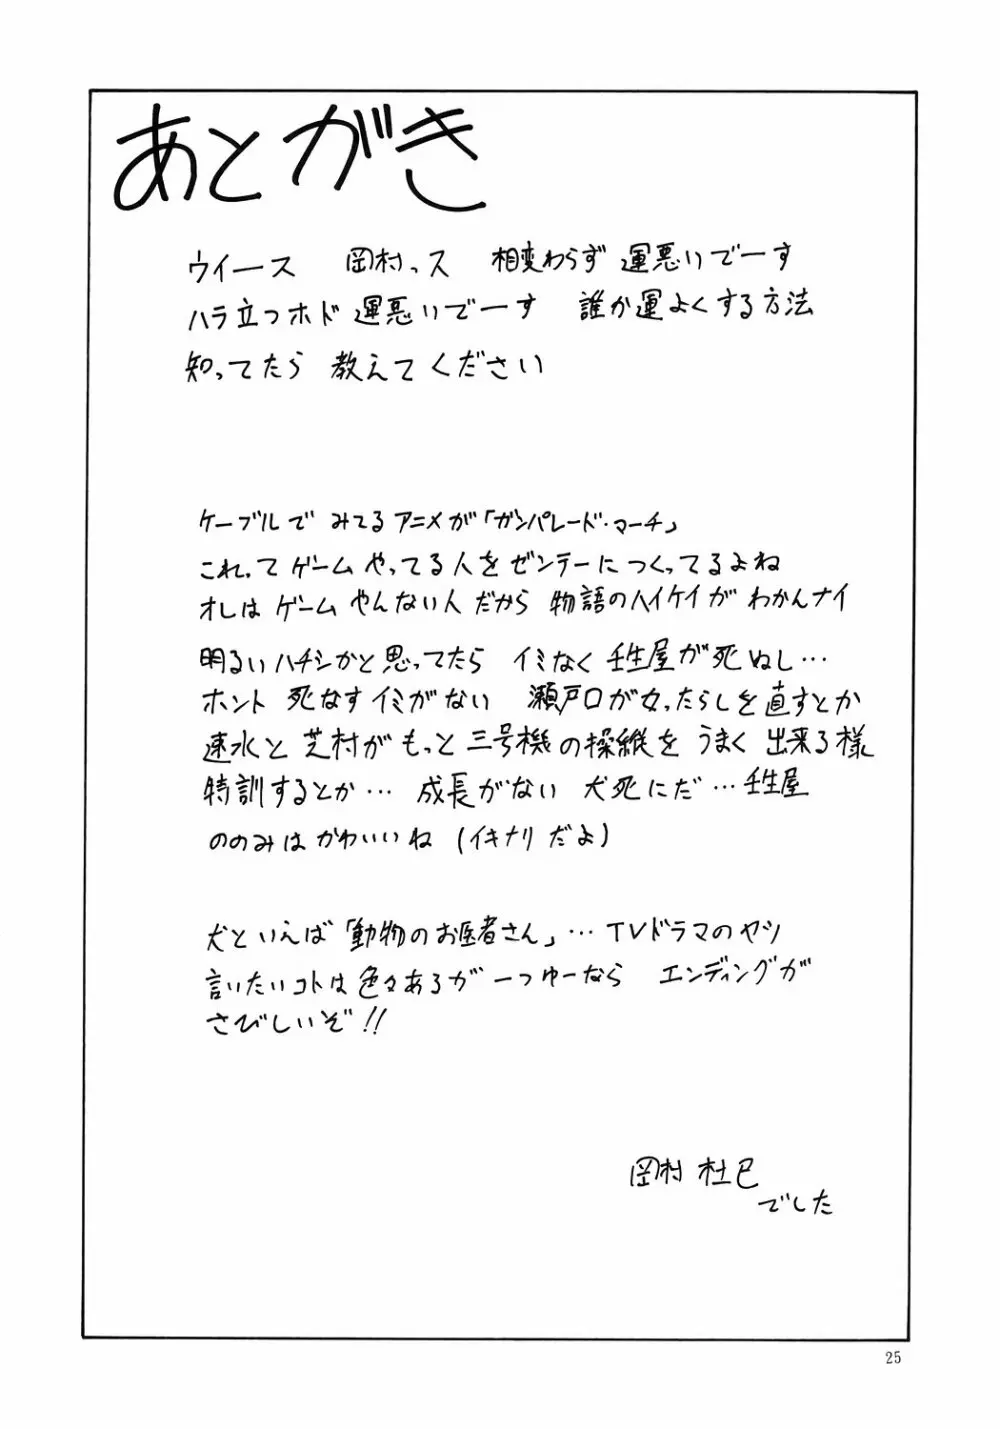 あとがき
ウイース 岡村っス 相変わらず運悪いでーす
ハラ立つホド運悪いでーす 誰か運よくする方法
知ってたら 教えてください
ケーブルで みてるアニメが「ガンパレード・マーチ」
これってゲームやってる人をゼンテーにつくってるよね
オレはゲームやんない人だから 物語のハイケイがわかんナイ
明るいハナシかと思ってたら イミなく壬生屋が死ぬし…
ホント 死なすイミがない 瀬戸口が女ったらしを直すとか
速水と芝村がもっと三号機の操縦をうまく出来る様
特訓するとか… 成長がない 犬死にだ…壬生屋
ののみはかわいいね(イキナリだよ)
犬といえば「動物のお医者さん」…TVドラマのヤツ
言いたいコトは色々あるが一つゆーなら エンディングが
さびしいぞ!!
岡村 杜巳
でした
25